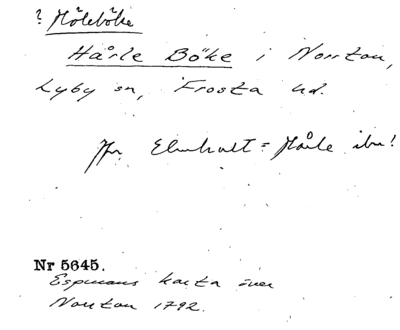 ? Möleböke
Hårle Böke i Norrtou,
Lyby sn, Frosta hd.
Jfr Elmhult = Hårle ibm!
Nr 5645.
Espmans karta över
Norrtou 1792.